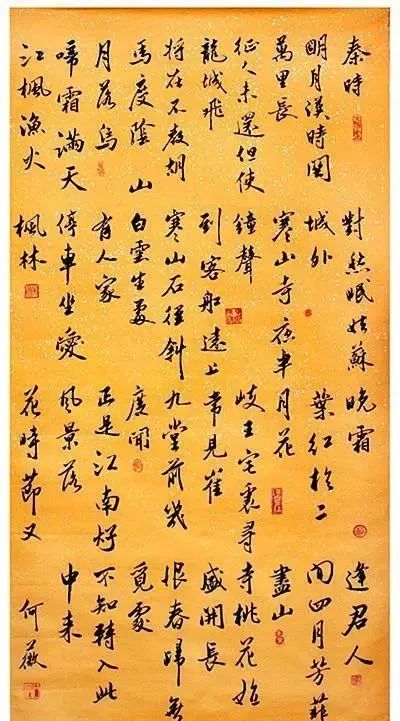 秦時
明月漢時關
萬里長
征人未還但使
龍城飛
將在不教胡
馬度陰山
月落烏
啼霜滿天
江楓漁火
對愁眠姑蘇
城外
寒山寺夜半
鐘聲
到客船遠上
寒山石徑斜
白雲生處
有人家
停車坐愛
楓林
晚霜
葉紅於二
月花
岐王宅裏尋
常見崔
九堂前幾
度聞
正是江南好
風景落
花時節又
逢君人
間四月芳菲
盡山
寺桃花始
盛開長
恨春歸無
覓處
不知轉入此
中來
何薇